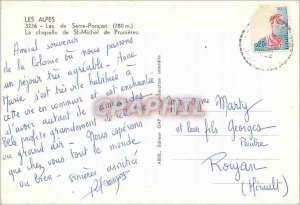 LES ALPES
3236 - Lac de Serre-Ponçon (780 m.)
La chapelle de St-Michel de Prunières.
Amical souvenir
de la colonie où nous passons
un séjour très agréable. Anne
Marie s'est très vite habituée à
cette vie en commun et est enchantée
d'avoir autant de
Elle profite grandement de
au grand air - Nous espérons
que chez vous tout le monde
va bien - Sincères amitiés
Marty
et les fils Georges
Peintre
Roujan
(Hérault)